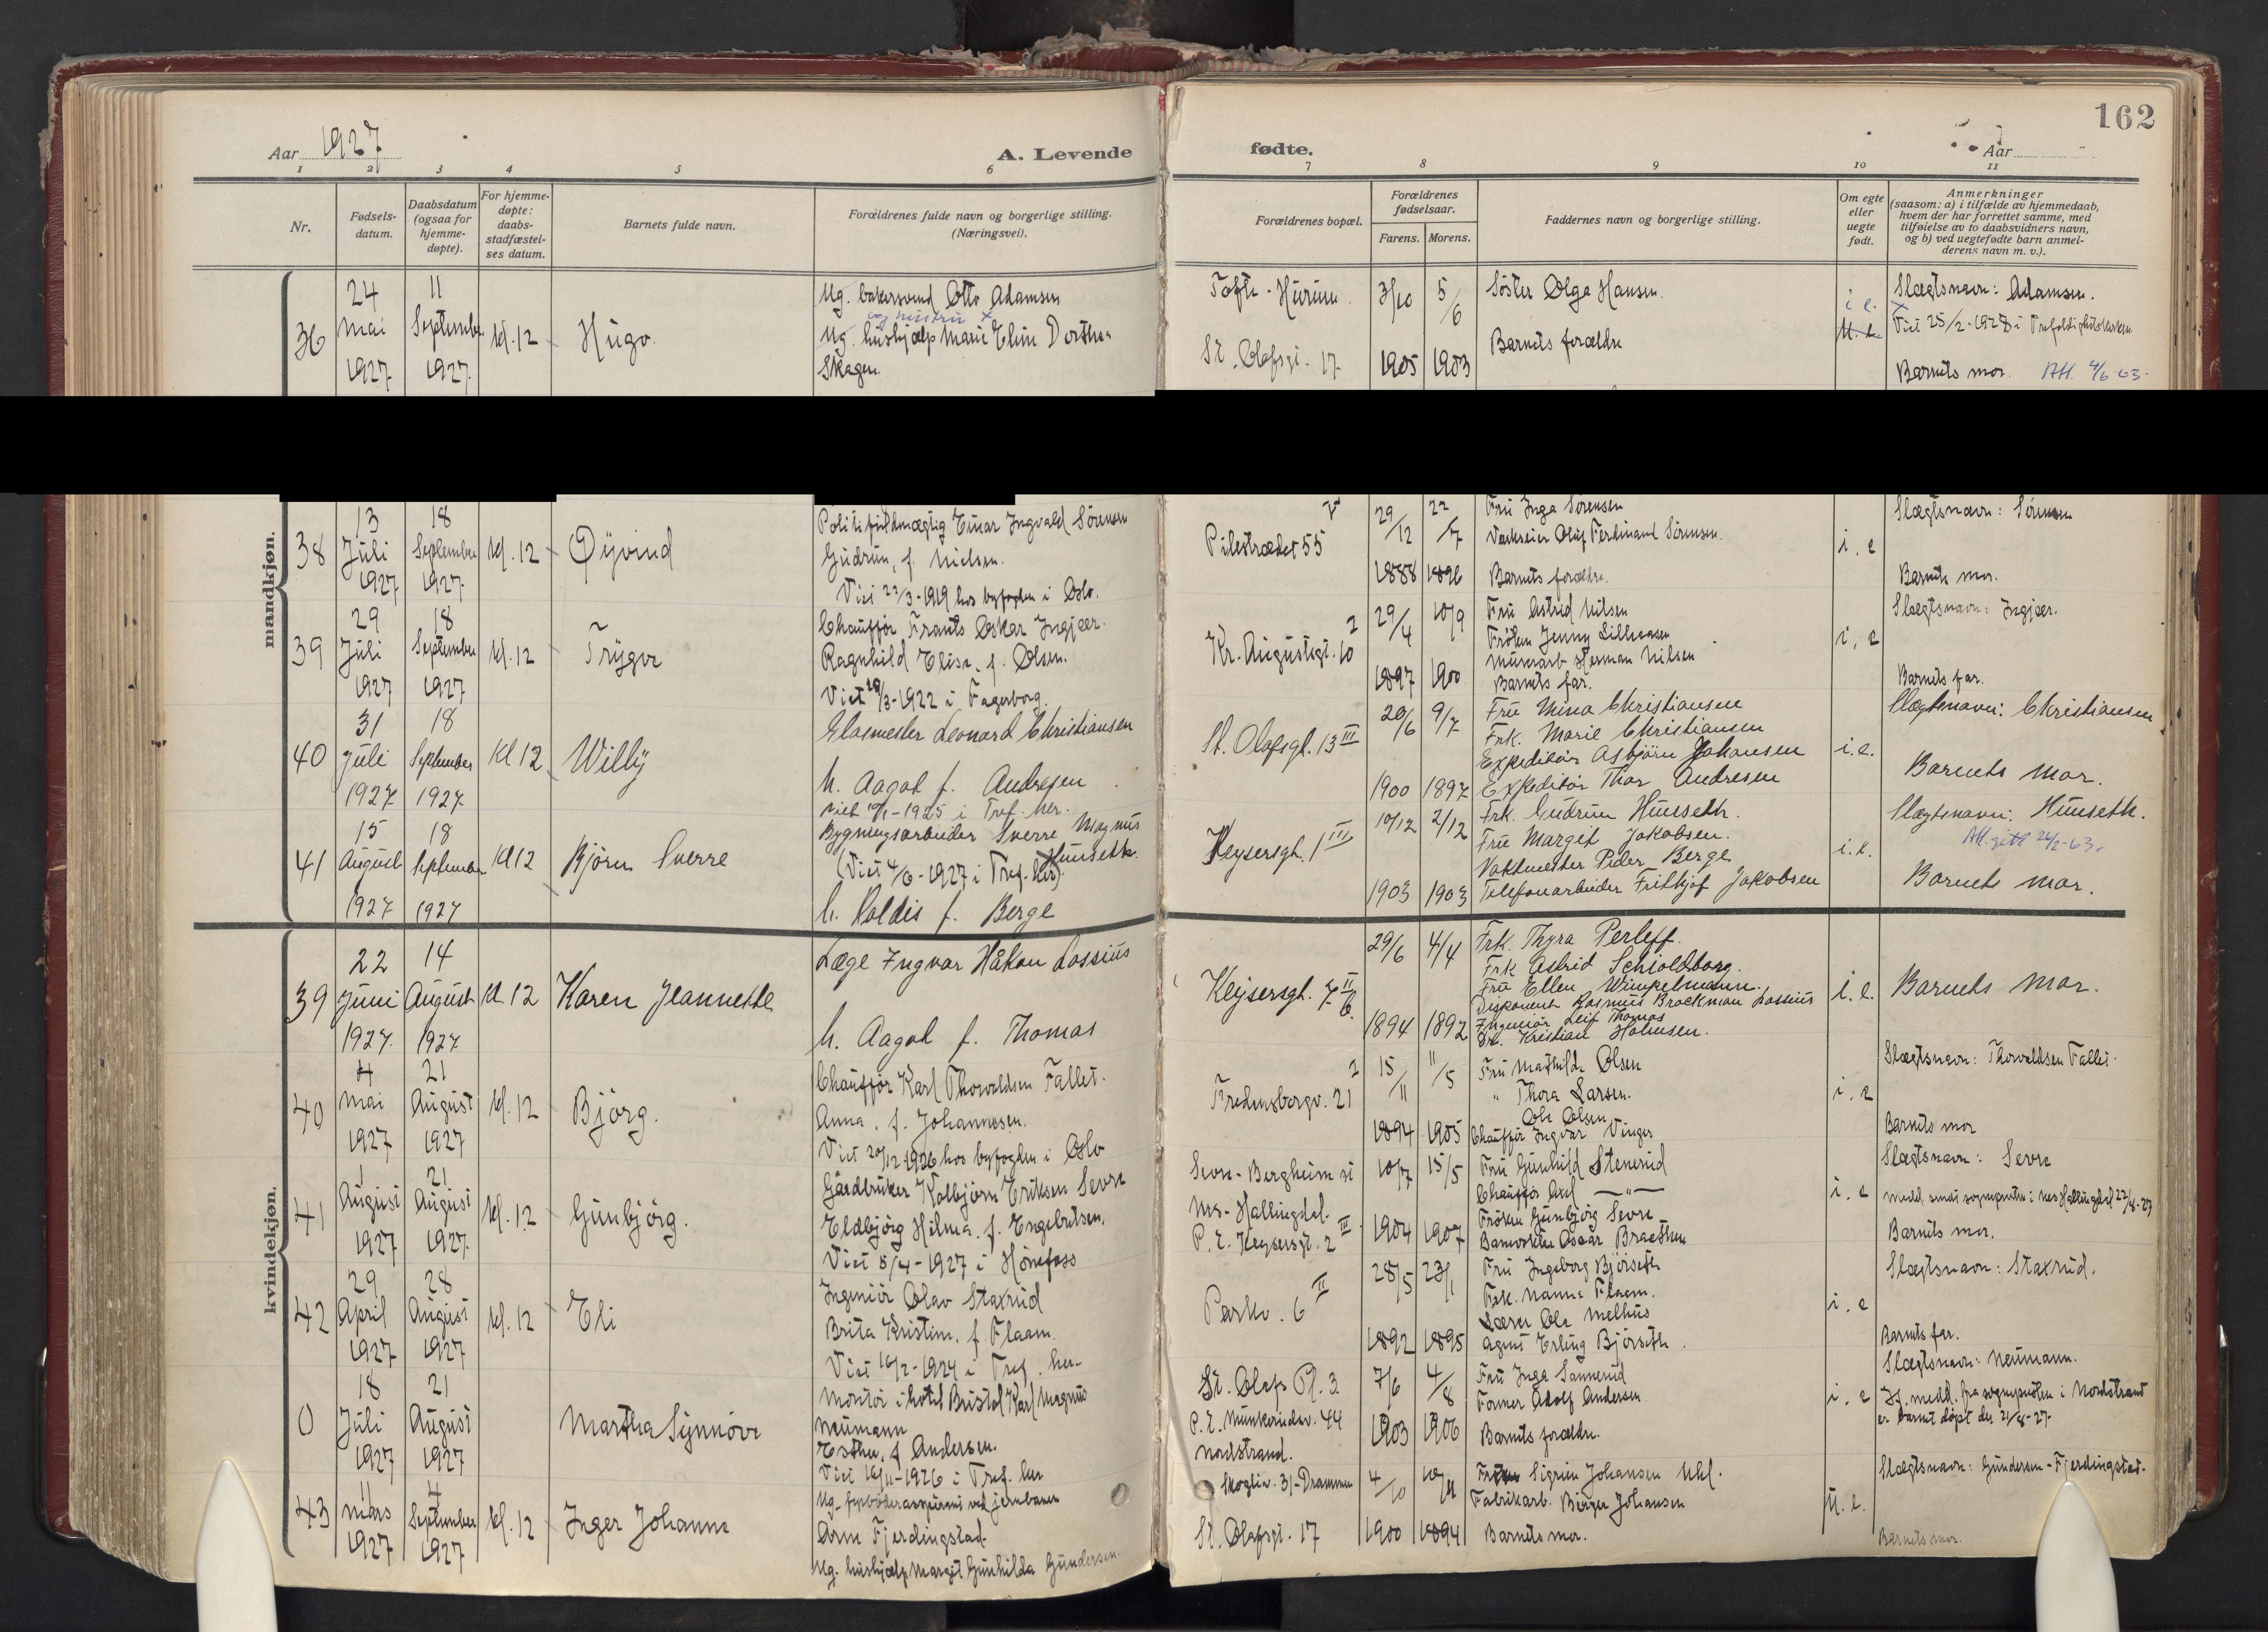 162
Aar 1927
A. Levende fødte.
Aar
1 2 3 4 5 6 7 8 9 10 11
Nr.
Fødsels-datum.
Daabsdatum (ogsaa for hjemme-døpte).
For hjemme-døpte: daabs-stadfæstel-ses datum.
Barnets fulde navn.
Forældrenes fulde navn og borgerlige stilling. (Næringsvei).
Forældrenes bopæl.
Forældrenes fødselsaar.
Farens. Morens.
Faddernes navn og borgerlige stilling.
Om egte eller uegte født.
Anmerkninger
(saasom: a) i tilfælde av hjemmedaab, hvem der har forrettet samme, med tilføielse av to daabsvidners navn, og b) ved uegtefødte barn anmelderens navn m. v.).
mandkjøn.
36
24 Mai 1927
11 September 1927
kl. 12
Hugo
Ug. bakersvend Otto Adamsen
og hustru x
Ug. hushjælp Marie Eline Dorthea
Skagen.
Tofte - Hurum.
St. Olafsgt. 17
3/10 1905
5/6 1903
Søster Olga Hansen.
Barnets forældre
i e.
U. e.
Slægtsnavn: Adamsen.
x Viet 25/2-1928 i Trefoldighetskirken
Barnets mor.
4/6-63.
38
13 Juli 1927
18 September 1927
kl. 12
Øyvind
Politifuldmægtig Einar Ingvald Sørensen
Gudrun, f. Nielsen.
Viet 22/3-1919 hos byfogden i Oslo.
Pilestrædet 55
29/12 1888
22/7 1896
Fru Inga Sørensen
Værkseier Oluf Ferdinand Sørensen.
Barnets forældre.
i. e
Slægtsnavn: Sørensen
Barnets mor.
39
29 Juli 1927
18 September 1927
kl. 12
Trygve
Chauffør Frants Oskar Ingjær.
Ragnhild Elise, f. Olsen.
Viet 10/3-1922 i Fagerborg.
Kr. Augustsgt. 10
29/4 1897
10/9 1900
Fru Astrid Nilsen
Frøken Jenny Lillraasen
Murerarb. Herman Nilsen
Barnets far.
i, e
Slægtsnavn: Ingjær.
Barnets far.
40
31 juli 1927
18 September 1927
Kl 12
Willy
Glasmester Leonard Christiansen
h. Aagot f. Andresen
viet 10/1-1925 i Tref. her.
St. Olafsgt. 13 III
20/6 1900
9/7 1897
Fru Mina Christiansen
Frk. Marie Christiansen
Expeditør Asbjörn Johansen
Expeditør Thor Andresen
i. e.
Slægtsnavn: Christiansen
Barnets mor.
41
15 August 1927
18 September 1927
Kl 12
Björn Sverre
Bygningsarbeider Sverre Magnus
Huuseth.
(Viet 4/6-1927 i Tref. her).
h. Valdis f. Berge
Keysersgt. 1 III
10/12 1903
2/12 1903
Frk. Gudrun Huuseth.
Fru Margit Jakobsen.
Vaktmester Peder Berge
Telefonarbeider Frithjof Jakobsen
i. e.
Slægtsnavn: Huuseth.
Barnets mor.
kvindekjøn.
39
22 Juni 1927.
14 August 1927
Kl 12
Karen Jeannette
Læge Ingvar Håkon Lossius
h. Aagot f. Thomas
Keysersgt. 7 II
29/6 1894
4/4 1892
Frk. Thyra Perleff.
Frk Astrid Schioldborg.
Fru Ellen Wimpelmann.
Disponent Rasmus Brockman Lossius
Ingeniör Leif Thomas
Dr. Kristian Holmsen.
i. e.
Barnets mor.
40
4 Mai 1927
21 August 1927
kl. 12
Bjørg.
Chauffør Karl Thorvaldsen Fallet.
Anna, f. Johannesen.
Viet 20/12-1926 hos byfogden i Oslo
Fredensborgv. 21
15/11 1894
11/5 1905
Fru Mathilde Olsen
" Thora Larsen.
Ole Olsen
Chauffør Ingvar Vinger
i. e
Slægtsnavn: Thorvaldsen Fallet.
Barnets mor
41
1 August 1927
21 August 1927.
kl. 12
Gunbjørg.
Gårdbruker Kolbjørn Eriksen Sevre
Eldbjørg Hilma, f. Engebretsen.
Viet 5/4-1927 i Hønefoss
Sevre - Bergheim st
Nes - Hallingdal.
P. t. Keysersgt. 2 III
10/7 1904
15/5 1907
Fru Gunhild Stenerud
Chauffør Axel —"—
Frøken Gunbjørg Sevre
Banevokter Oscar Braathen
i. e
Slægtsnavn: Sevre
medd. sendt sogneprsten i Nes Hallingdal 22/8-27
Barnets mor.
42
29 April 1927
28 August 1927
kl. 12
Eli
Ingeniør Olav Staxrud
Brita Kristine, f. Flaam.
Viet 16/2-1924 i Tref. her.
Parkv. 6 II
28/5 1892
23/1 1895
Fru Ingeborg Bjørseth
Frk. Nanna Flaam.
Lærer Ole Melhus
Agent Erling Bjørseth.
i. e
Slægtsnavn: Staxrud.
Barnets far.
0
18 Juli 1927
21 August 1927
Martha Synnøve
Montør i hotel Bristol Karl Magnus
Neumann
Esther, f Andersen.
Viet 16/11-1926 i Tref. her
St. Olafs Pl. 3
P. t. Munkerudv. 44
Nordstrand.
7/6 1903
4/8 1906
Fru Inga Sannerud
Former Adolf Andersen
Barnets forældre.
i. e
Slægtsnavn: Neumann.
If. medd. fra sognepresten i Nordstrand
er barnet døpt der 21/8-27.
43
11 Mars 1927
4 September 1927
kl. 12
Inger Johanne
Ug. fyrbøderaspirant ved jernbanen
Arne Fjerdingstad.
Ug. hushjælp Margit Gunhilda Gundersen.
Skogliv. 31-Drammen
St. Olafsgt. 17
4/10 1900
1894
Sigrun Johansen Uhl.
Fabrikarb. Birger Johansen
Barnets mor.
U. e.
Slægtsnavn: Gundersen-Fjerdingstad.
Barnets mor.